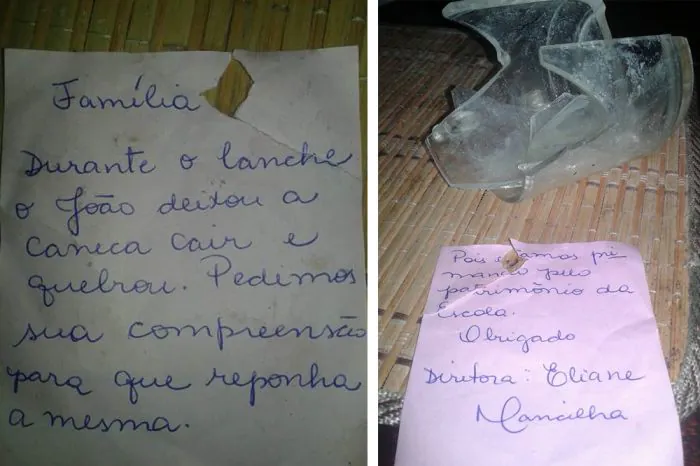 Família
Durante o lanche
o João deixou a
caneca cair e
quebrou. Pedimos
sua compreensão
para que reponha
a mesma.
Pois estamos pri
mando pelo
patrimônio da
Escola.
Obrigado
Diretora: Eliane
Mancilha